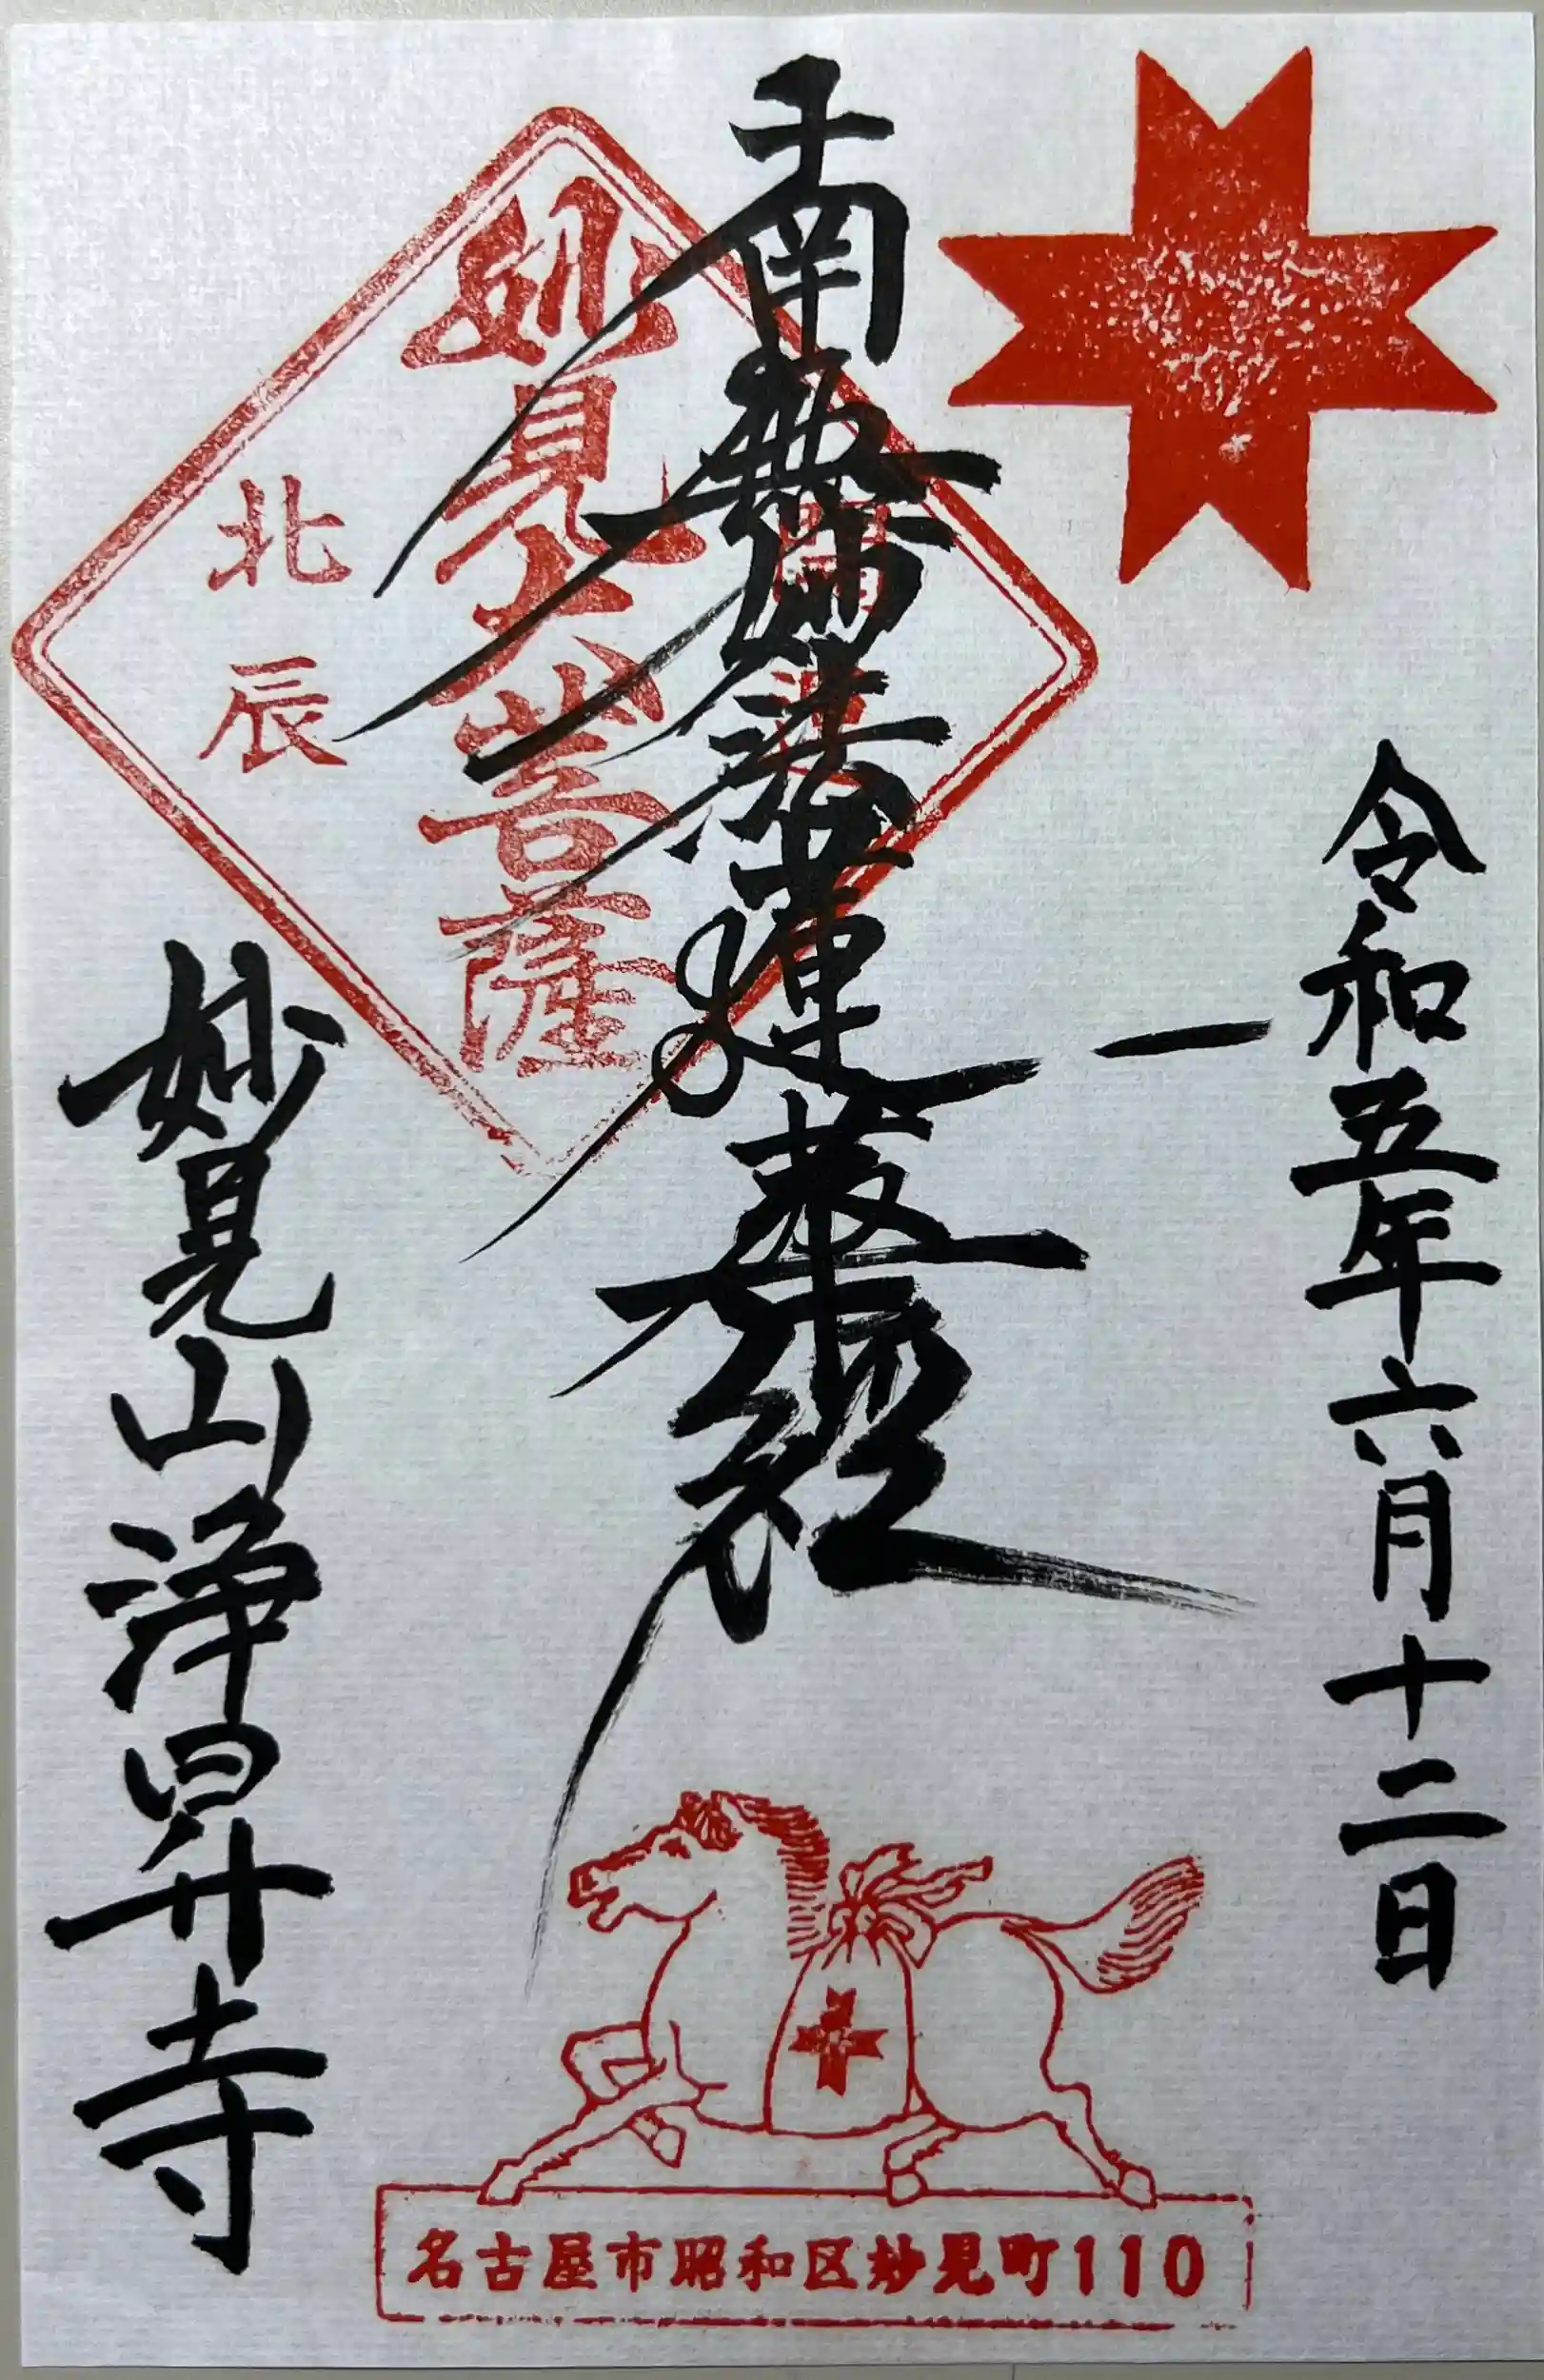 令和五年六月十二日
南無妙法蓮華経
開運
妙見大菩薩
北辰
妙見山浄昇寺
名古屋市昭和区妙見町110